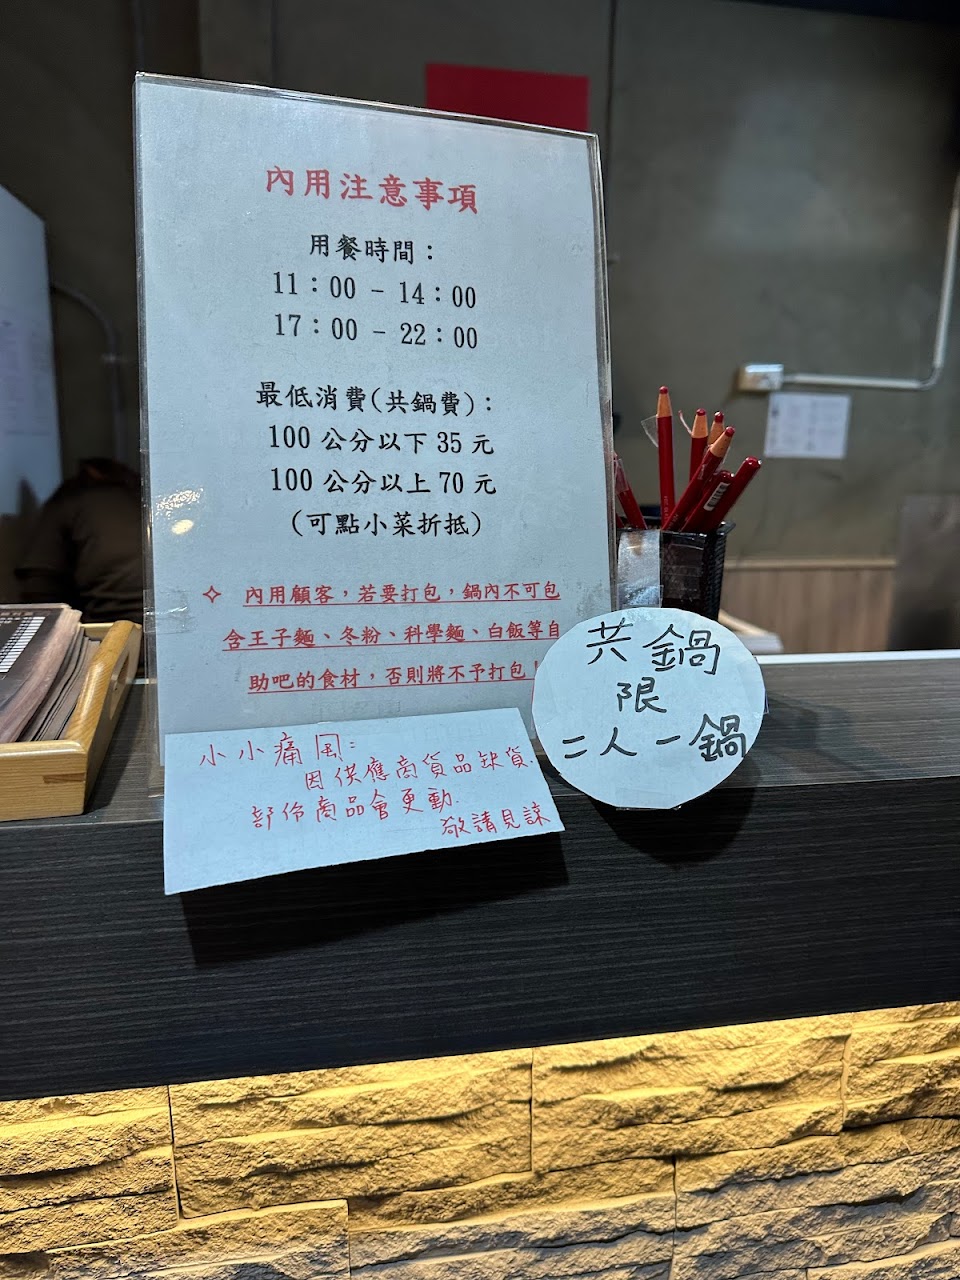 內用注意事項
用餐時間：
11：00 - 14：00
17：00 - 22：00
最低消費(共鍋費)：
100 公分以下 35 元
100 公分以上 70 元
(可點小菜折抵)
✧ 內用顧客，若要打包，鍋內不可包
含王子麵、冬粉、科學麵、白飯等自
助吧的食材，否則將不予打包！
小小痛風：
因供應商貨品缺貨.
部份商品會更動.
敬請見諒
共鍋
限
二人一鍋